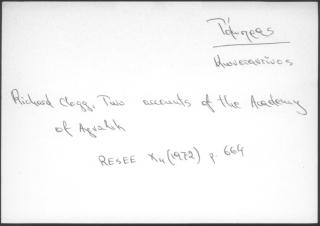 Τόμπρας
Κωνσταντίνος
Richard Clogg, Two accounts of the Academy
of Ayvalik
RESEE X4 (1972) p. 664